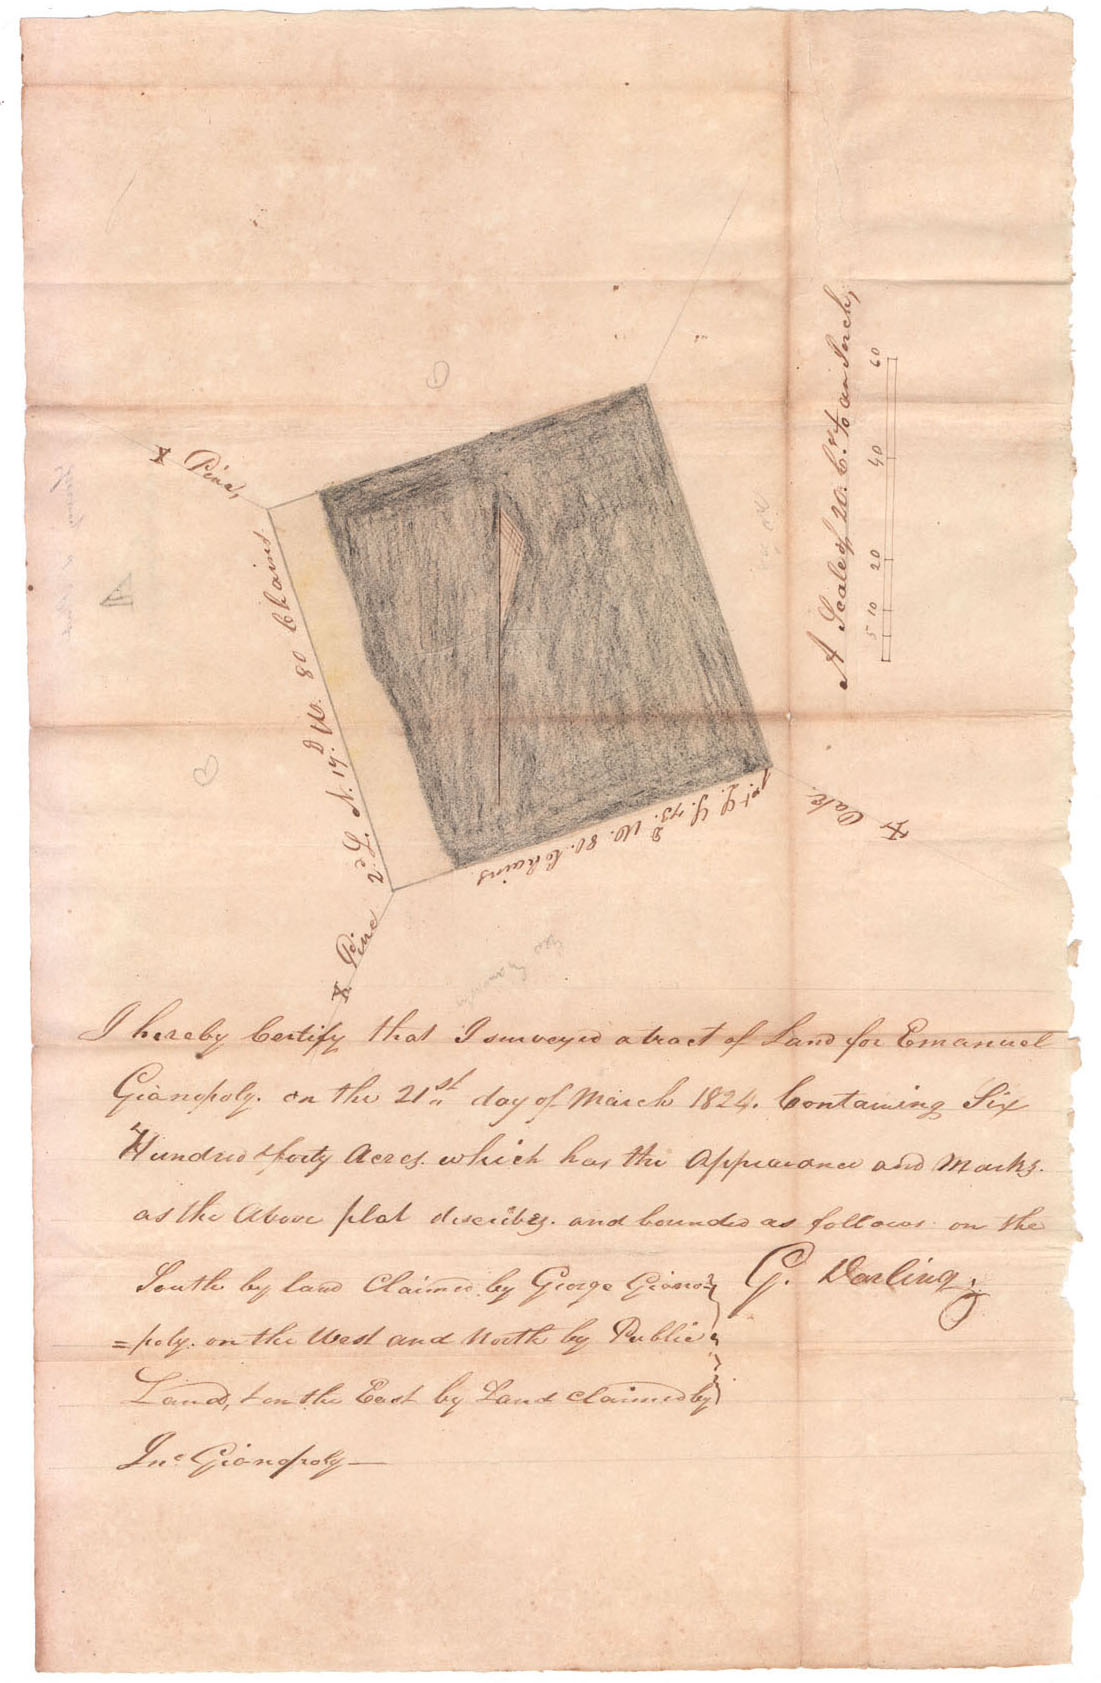 X Pine,
2.d L. N. 17. D W. 80 Chains
X Pine
1st L S. 73. D W. 80. Chains
X Oak.
A Scale of 20. C.s to an Inch,
5 10 20 40 60
I hereby Certify that I surveyed a tract of Land for Emanuel
Gianopoly. on the 21st day of March 1824. Containing Six
Hundred & forty Acres. which has the Appearance and Marks.
as the Above plat describes. and bounded as follows on the
South by land Claimed by George Giano
=poly. on the West and North by Public
Land, & on the East by Land claimed by
Jno Gianopoly—
G. Darling